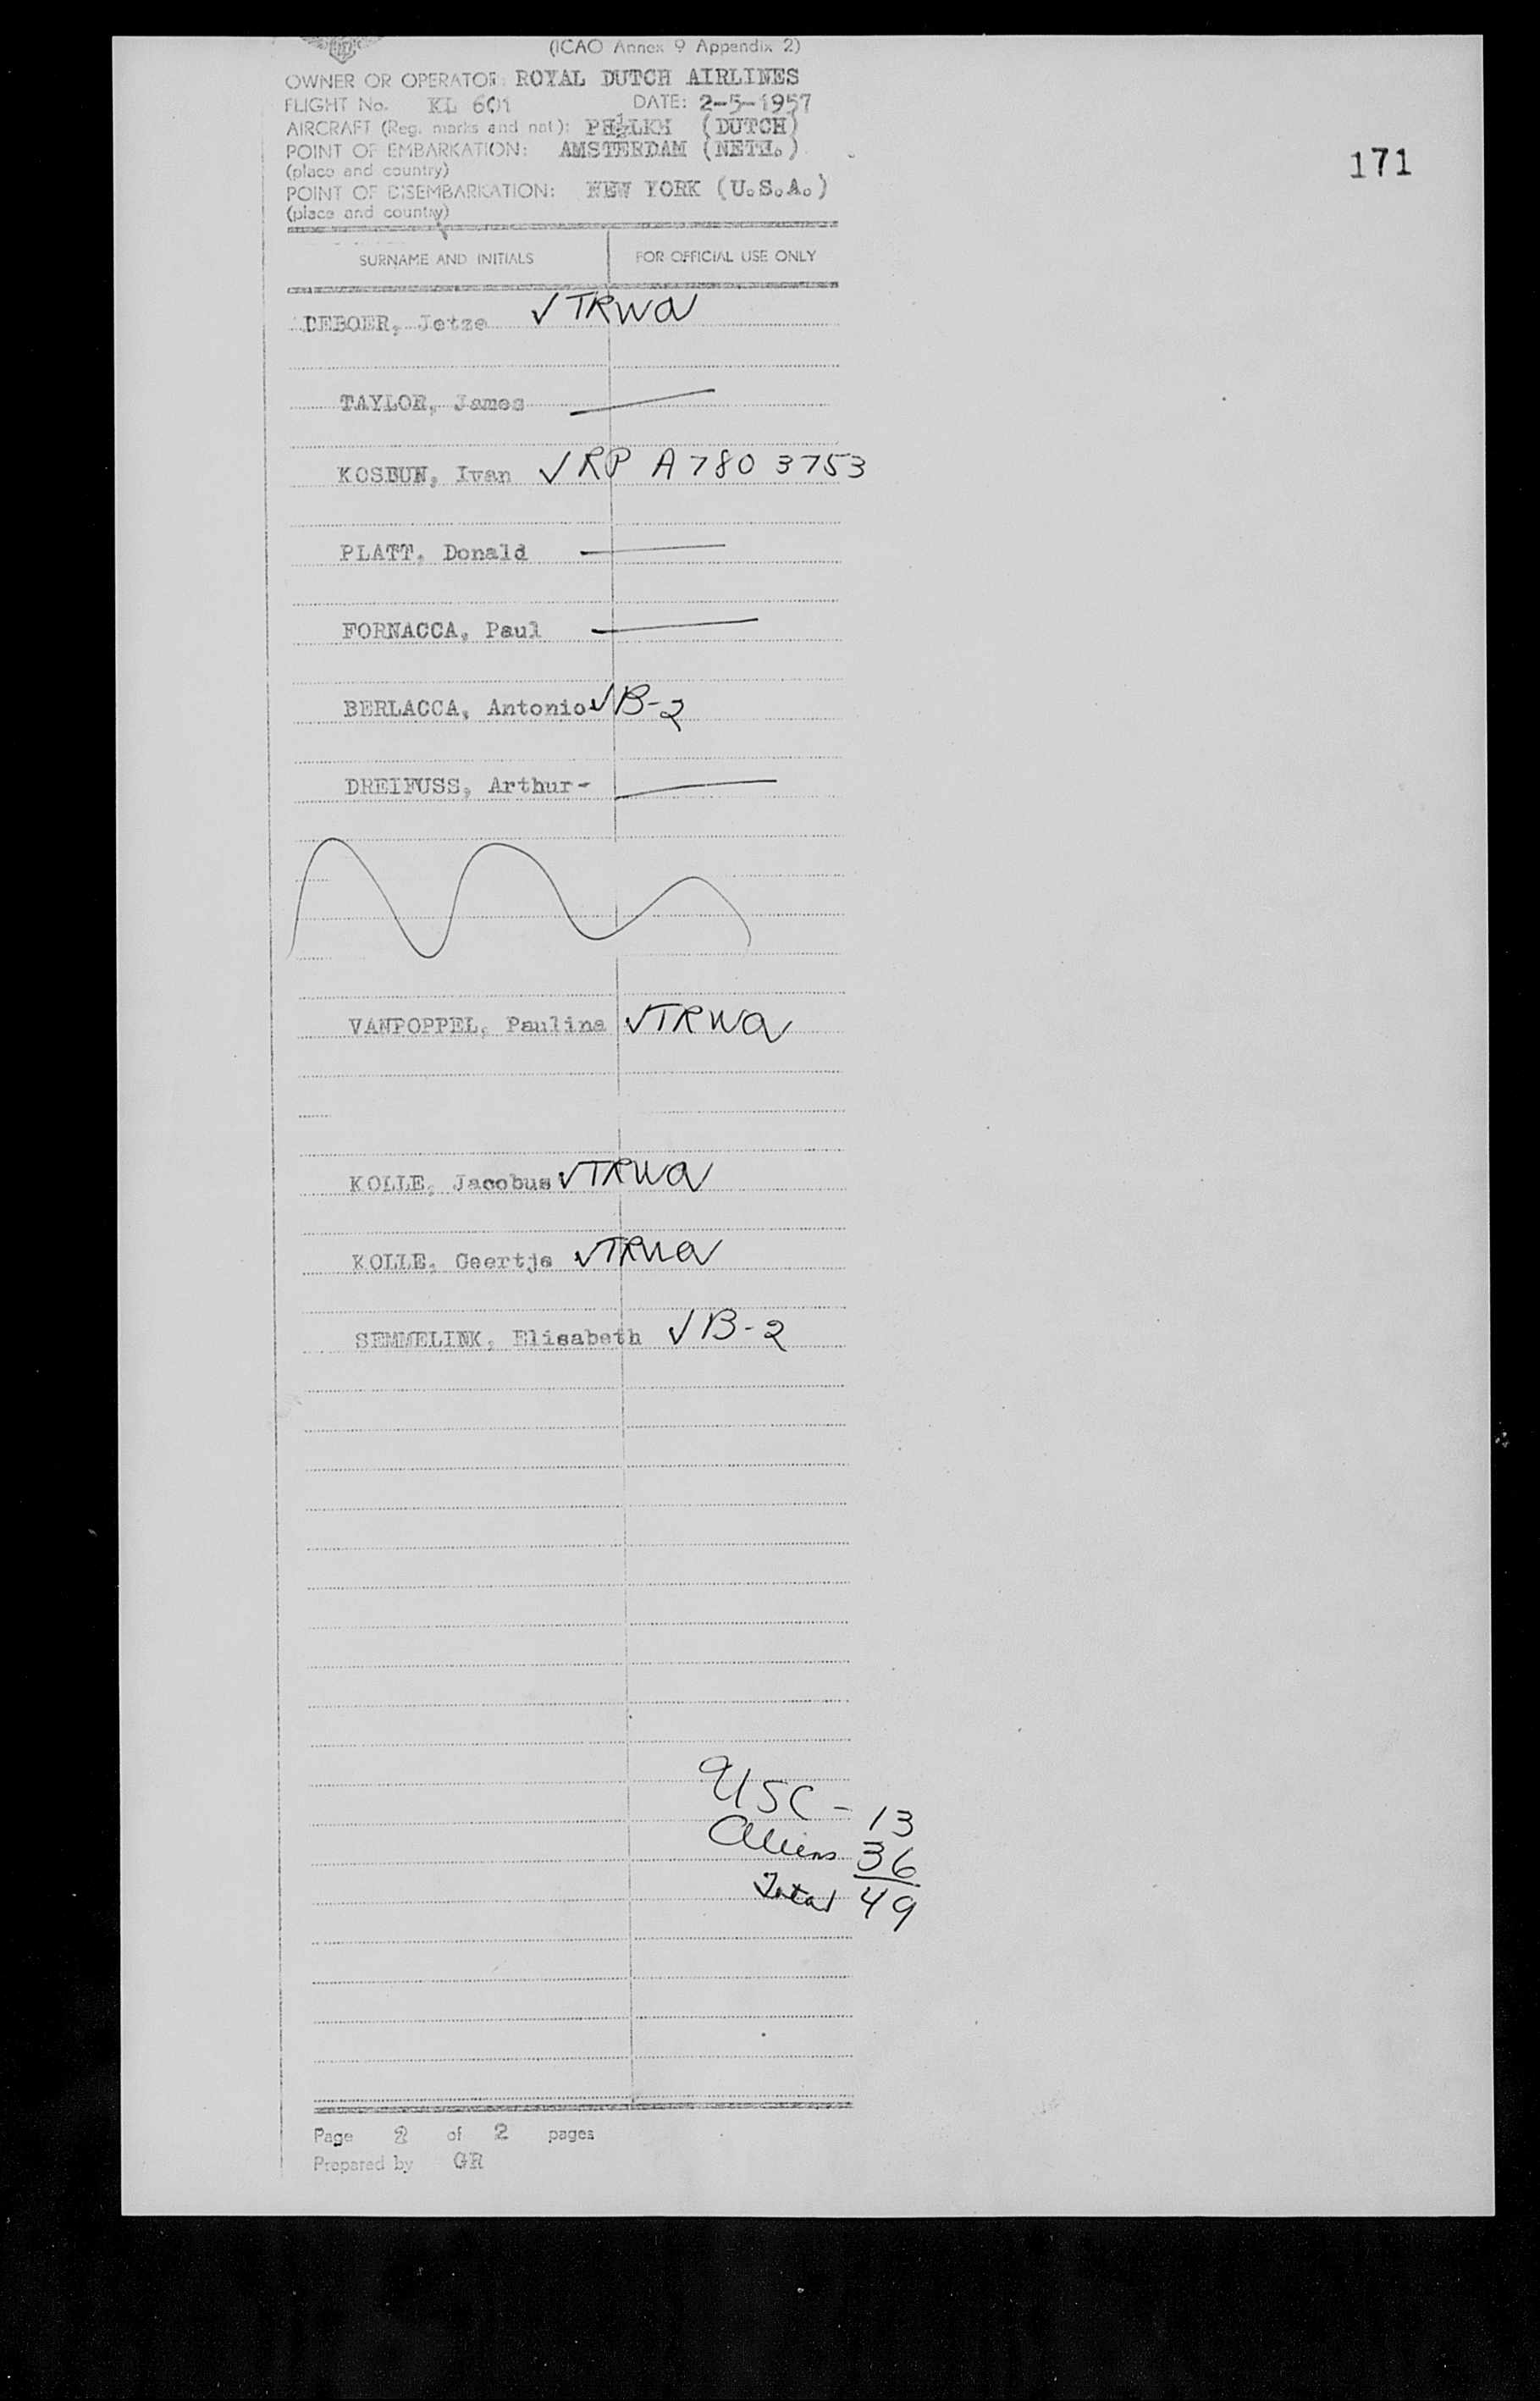 (ICAO Annex 9 Appendix 2)
OWNER OR OPERATOR: ROYAL DUTCH AIRLINES
FLIGHT No. KL 601 DATE: 2-5-1957
AIRCRAFT (Reg. marks and nat): PH-LKM (DUTCH)
POINT OF EMBARKATION: AMSTERDAM (NETH.)
171
(place and country)
POINT OF DISEMBARKATION: NEW YORK (U.S.A.)
(place and country)
SURNAME AND INITIALS FOR OFFICIAL USE ONLY
DEBOER, Jetze ✓ TRWA
TAYLOR, James
KOSBUN, Ivan ✓ RP A7803753
PLATT, Donald
FORNACCA, Paul
BERLACCA, Antonio ✓ B-2
DREIFUSS, Arthur-
VANPOPPEL, Paulina ✓ TRWA
KOLLE, Jacobus ✓ TRWA
KOLLE, Geertje ✓ TRWA
SEMMELINK, Elisabeth ✓ B-2
USC - 13
Aliens 36
Total 49
Page 2 of 2 pages
Prepared by GR